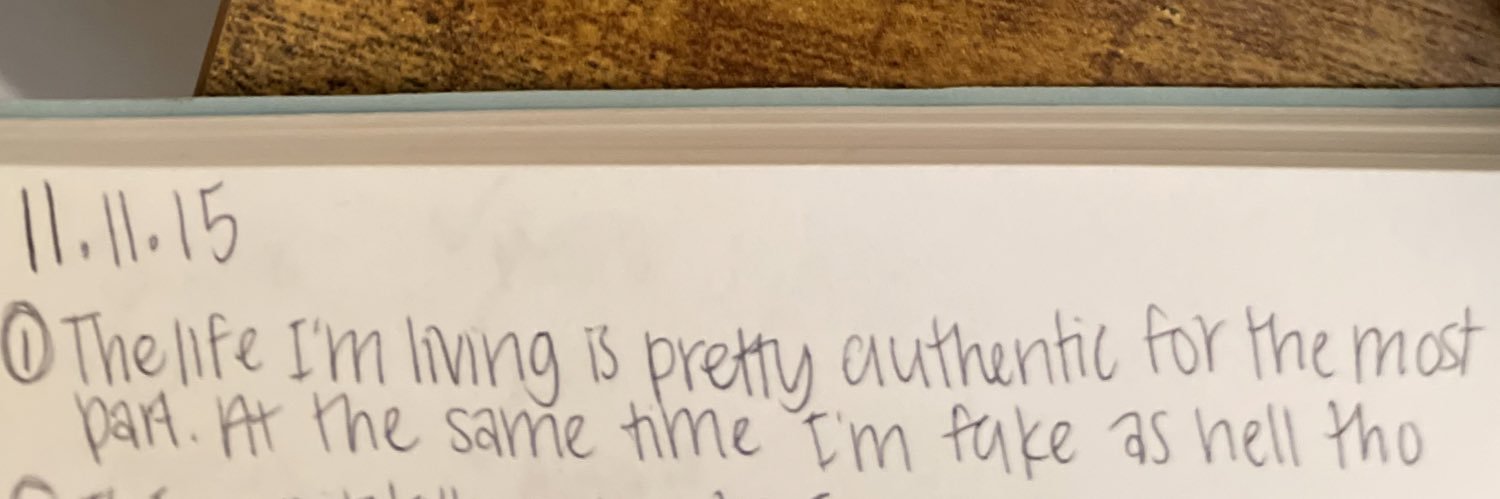 11.11.15
① The life I'm living is pretty authentic for the most
part. At the same time I'm fake as hell tho